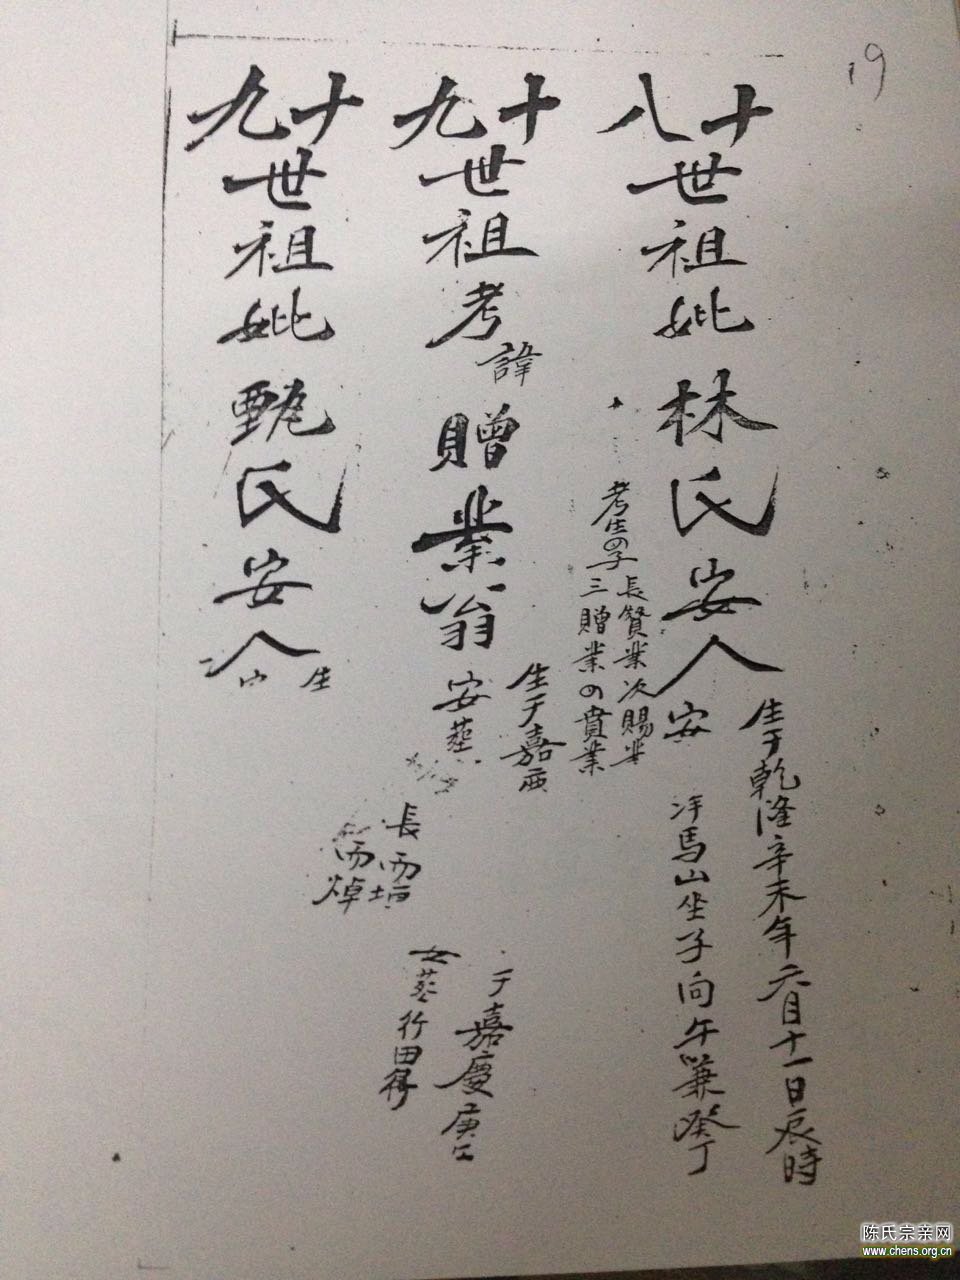 19
十八世祖妣林氏安人
生于乾隆辛未年六月十一日辰時
安
馬山坐子向午兼癸丁
考生四子
長贊業次賜業
三贈業四貴業
十九世祖考諱贈業翁
生于嘉
安葬
長而垣
而焯
十九世祖妣甄氏安人
生
于嘉慶庚
葬行田
陈氏宗亲网
www.chens.org.cn